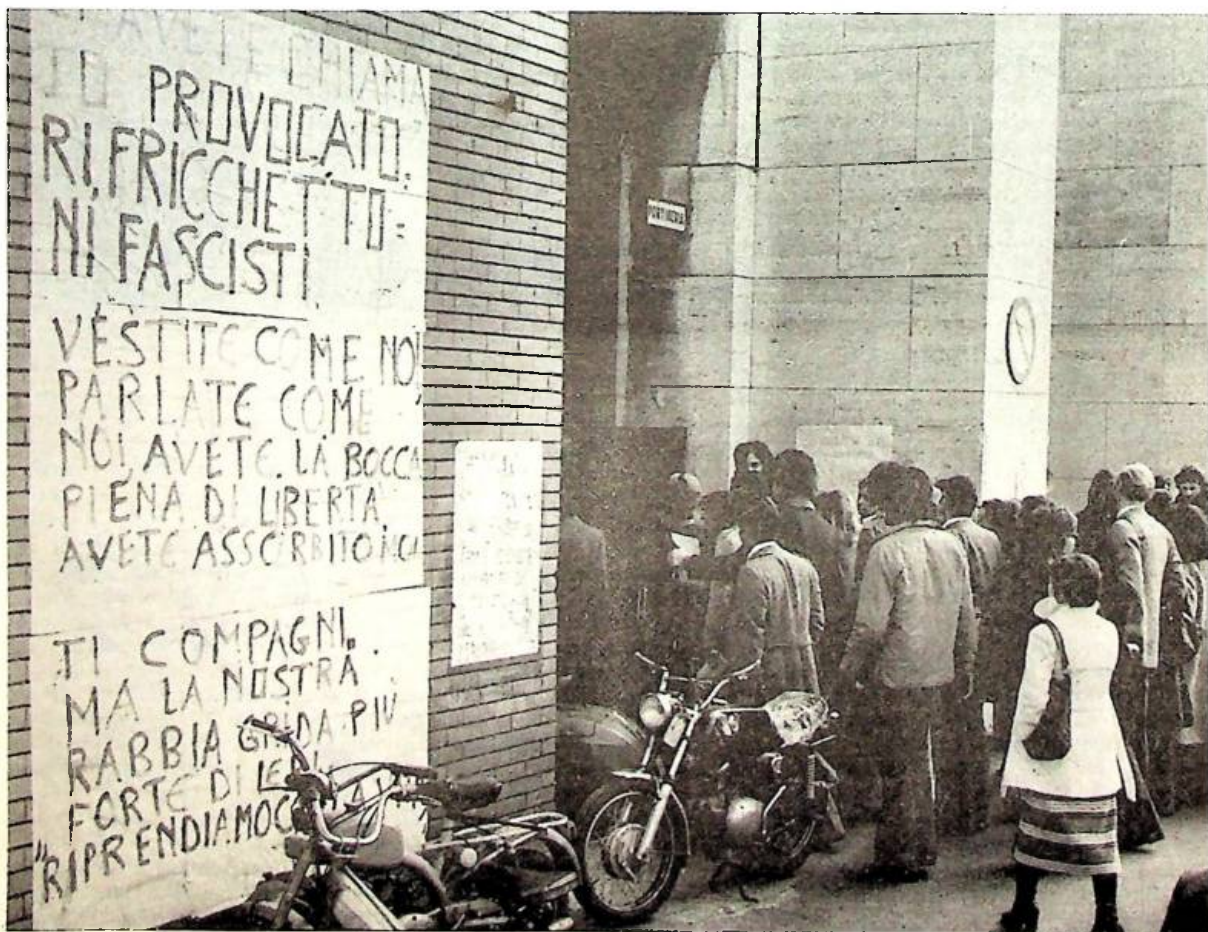 AVETE CHIAMA
TO PROVOCATO=
RI, FRICCHETTO=
NI, FASCISTI.
VESTITE COME NOI
PARLATE COME
NOI, AVETE LA BOCCA
PIENA DI LIBERTÀ,
AVETE ASSORBITO
TI COMPAGNI.
MA LA NOSTRA
RABBIA GRIDA PIÙ
FORTE DI
"RIPRENDIAMOC
PORTINERIA